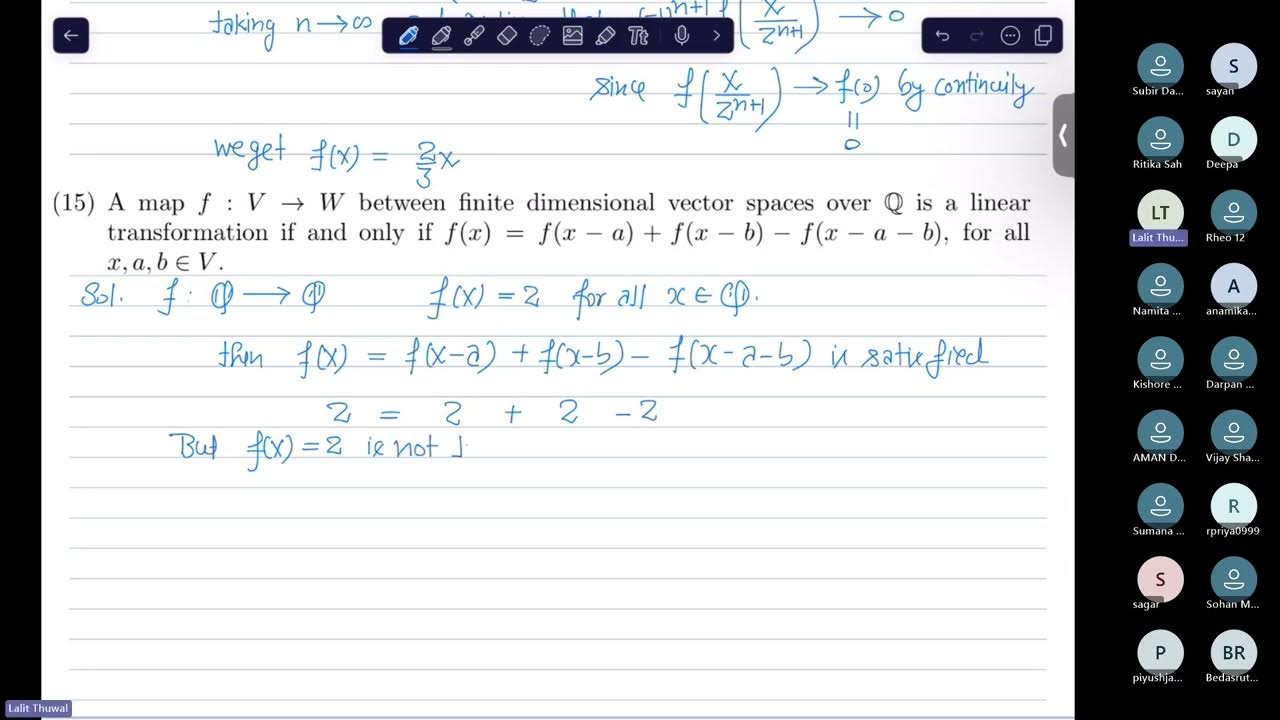 taking n→∞ (-1)ⁿ⁺¹ f(x/2ⁿ⁺¹) → 0
since f(x/2ⁿ⁺¹) → f(0) by continuity
||
0
we get f(x) = 2/3 x
(15) A map f : V → W between finite dimensional vector spaces over ℚ is a linear
transformation if and only if f(x) = f(x − a) + f(x − b) − f(x − a − b), for all
x, a, b ∈ V.
Sol. f : ℚ → ℚ f(x) = 2 for all x ∈ ℚ.
then f(x) = f(x-a) + f(x-b) - f(x-a-b) is satisfied
2 = 2 + 2 - 2
But f(x) = 2 is not
Tt
Subir Da...
S
sayan
Ritika Sah
D
Deepa
LT
Lalit Thu...
Rheo 12
Namita ...
A
anamika...
Kishore ...
Darpan ...
AMAN D...
Vijay Sha...
Sumana ...
R
rpriya0999
S
sagar
Sohan M...
P
piyushja...
BR
Bedasrut...
Lalit Thuwal